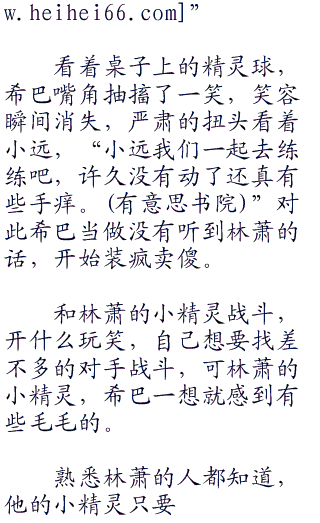 w.heihei66.com]”
看着桌子上的精灵球，
希巴嘴角抽搐了一笑，笑容
瞬间消失，严肃的扭头看着
小远，“小远我们一起去练
练吧，许久没有动了还真有
些手痒。(有意思书院)”对
此希巴当做没有听到林萧的
话，开始装疯卖傻。
和林萧的小精灵战斗，
开什么玩笑，自己想要找差
不多的对手战斗，可林萧的
小精灵，希巴一想就感到有
些毛毛的。
熟悉林萧的人都知道，
他的小精灵只要